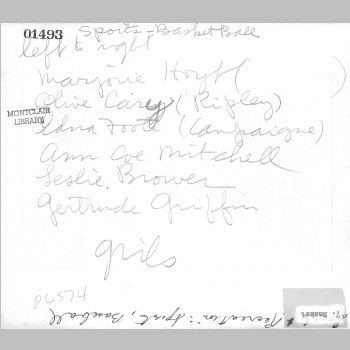 01493 Sports-BasketBall
left to right
Marjorie Hoyt ( )
Olive Carey (Ripley)
MONTCLAIR
LIBRARY
Edna Foote (Campaigne)
Ann Coe Mitchell
Leslie Brower
Gertrude Griffin
girls
PC574
Recreation: Sport, Baseball
BASKET